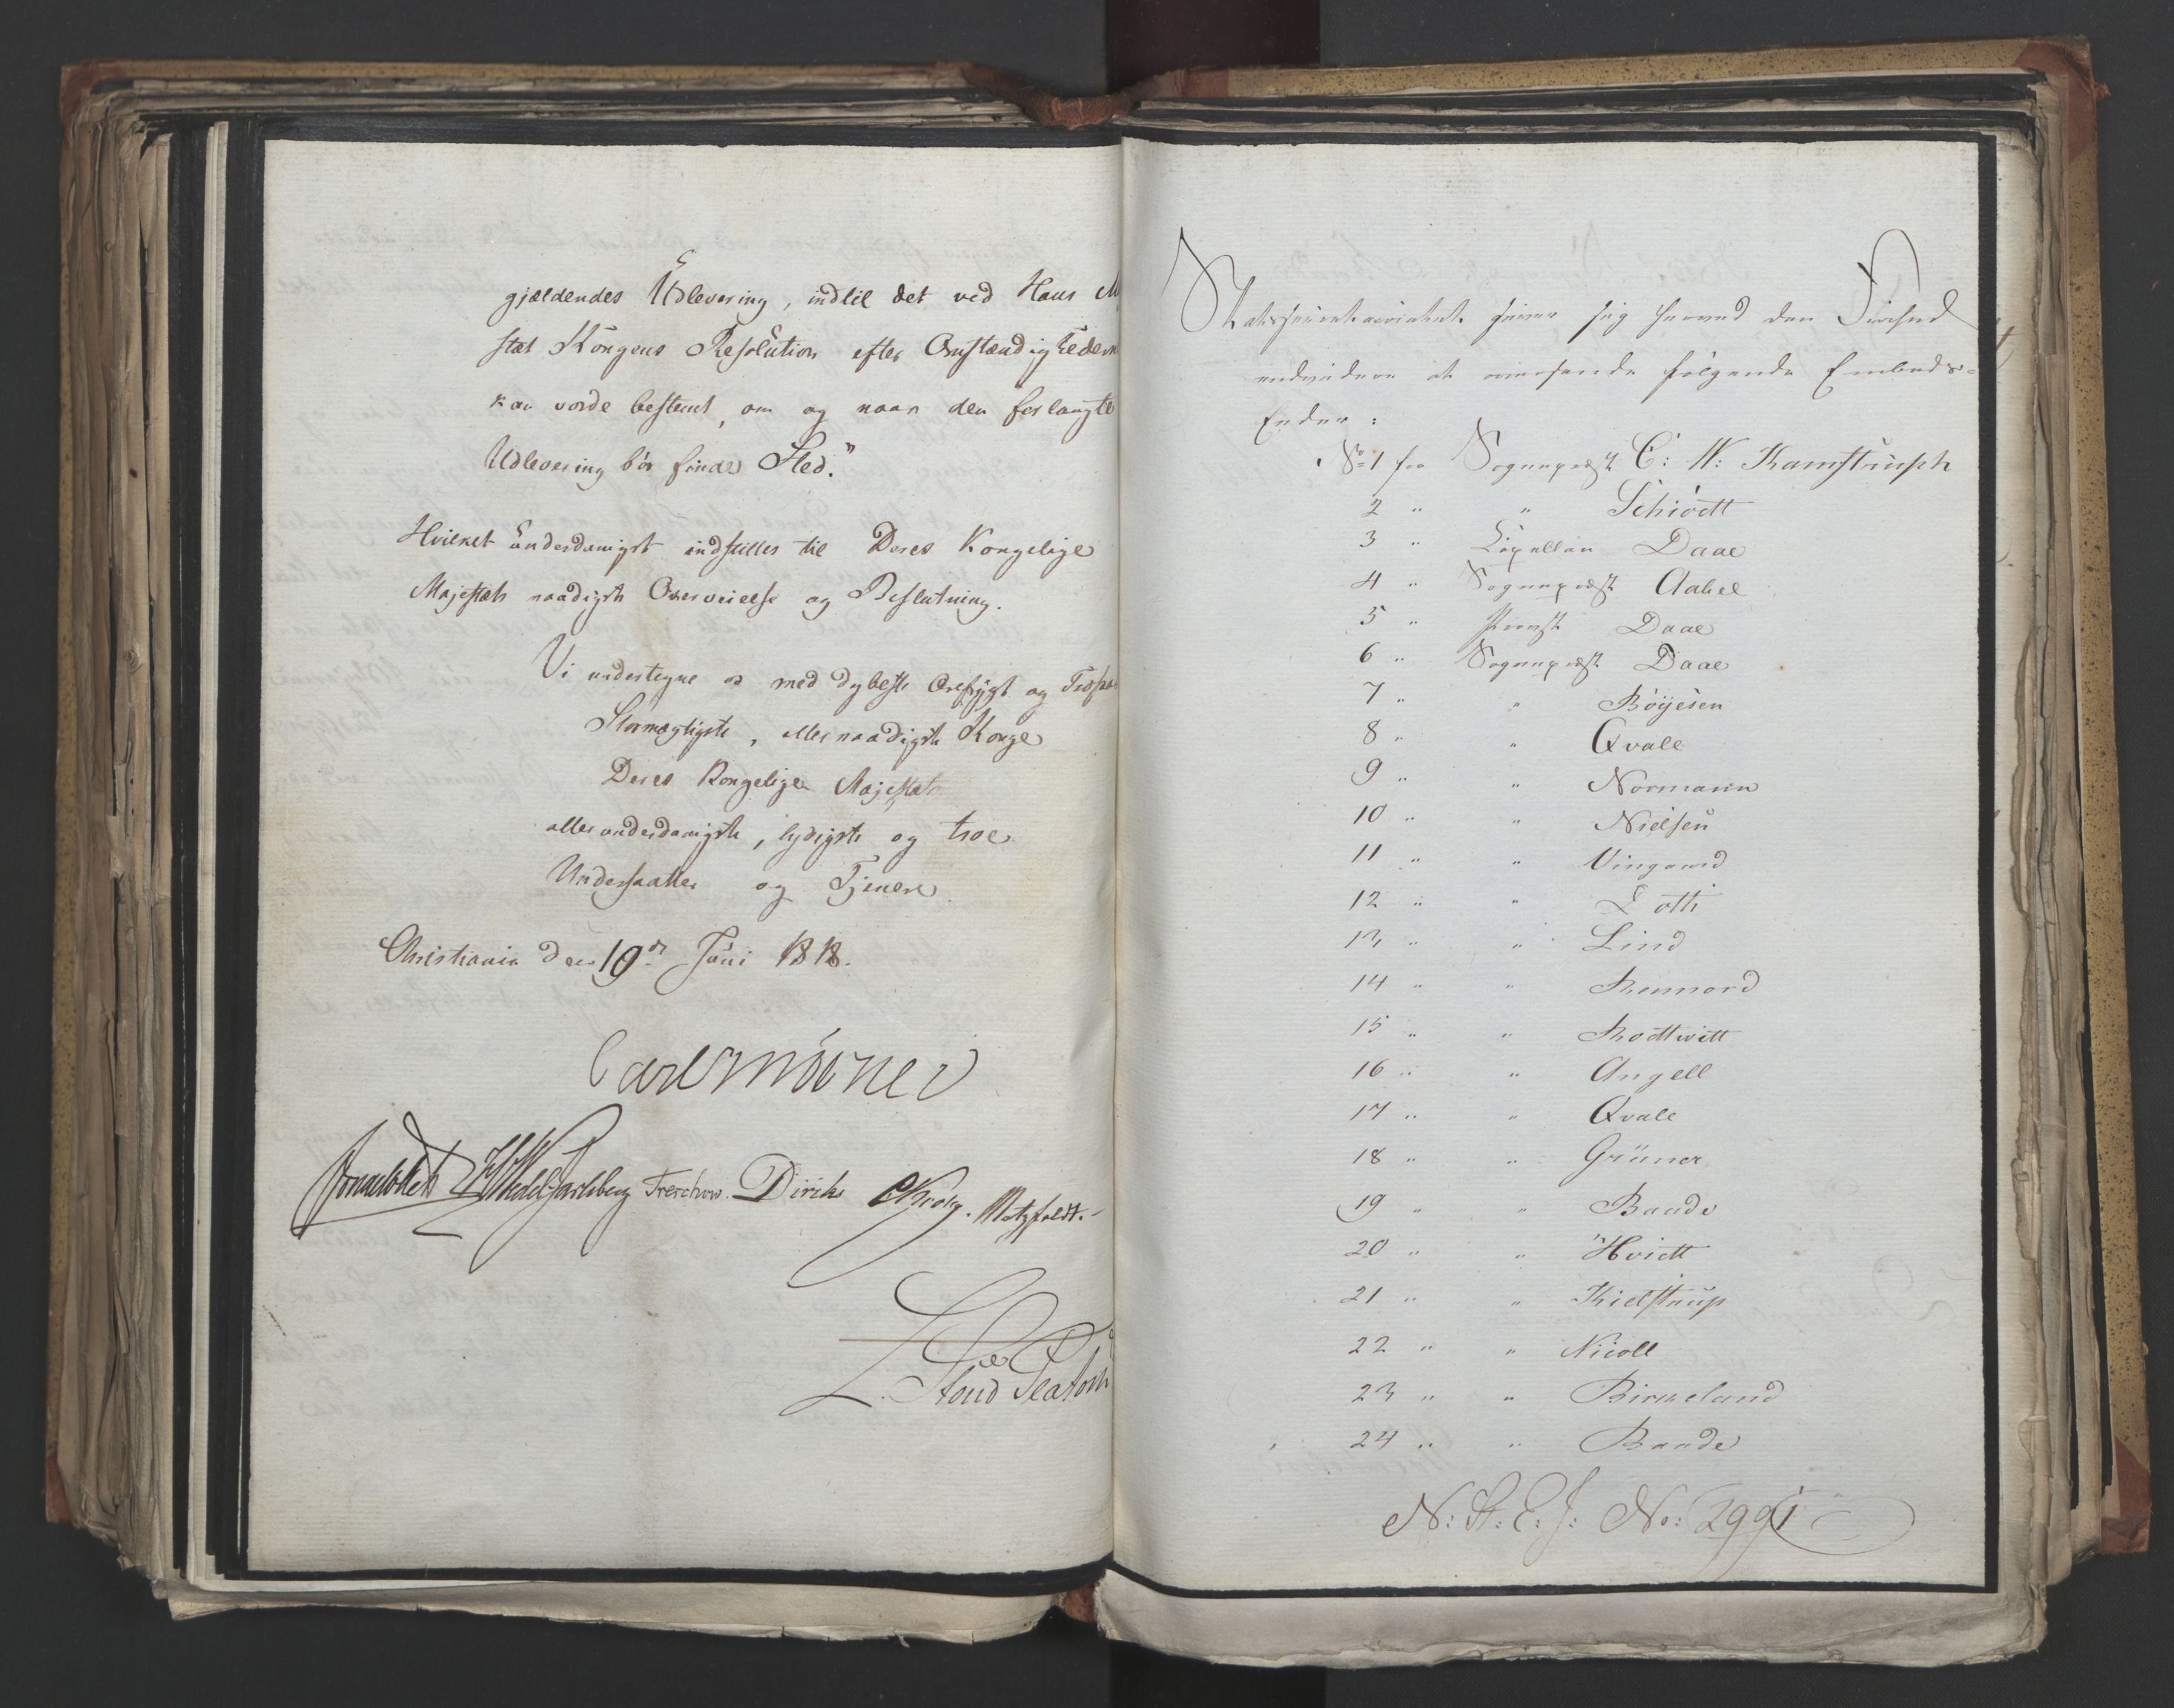 gjældendes Udlevering, indtil det ved Hans M
stæt Kongens Resolution efter Omstændighederne
kan vorde bestemt, om og naar den forlangte
Udlevering bör finde Sted."
Hvilket underdanigst indstilles til Deres Kongelige
Majestæts naadigste Overveielse og Beslutning.
Vi undertegne os med dybeste Ærefrygt og Troska
Stormægtigste, allernaadigste Konge
Deres Kongelige Majestæts
allerunderdanigste, lydigste og troe
Undersaatter og Tjenere
Christiania den 19de Juni 1818.
Carl Mörner
Sommerhielm HWedel Jarlsberg Treschow. Diriks CKrog. Motzfeldt.
L. Stoud Platou
Statssecretariatet giver sig herved den Frihed
endvidere at oversende følgende Embeds-
Eeder:
No 1 fra Sognepræst C: W: Kamstrüph
2 " " Schiött
3 " Capellan Daae
4 " Sognepræst Aabel
5 " Provst Daae
6 " Sognepræst Daae
7 " " Böÿesen
8 " " Qvale
9 " " Normann
10 " " Nielsen
11 " " Vingaard
12 " " Lotte
13 " " Lind
14 " " Rennord
15 " " Rodtwitt
16 " " Angell
17 " " Qvale
18 " " Grüner
19 " " Baade
20 " " Hvidt
21 " " Kielstrup
22 " " Nicoll
23 " " Birkeland
24 " " Baade
N: St: E: J: No: 2991